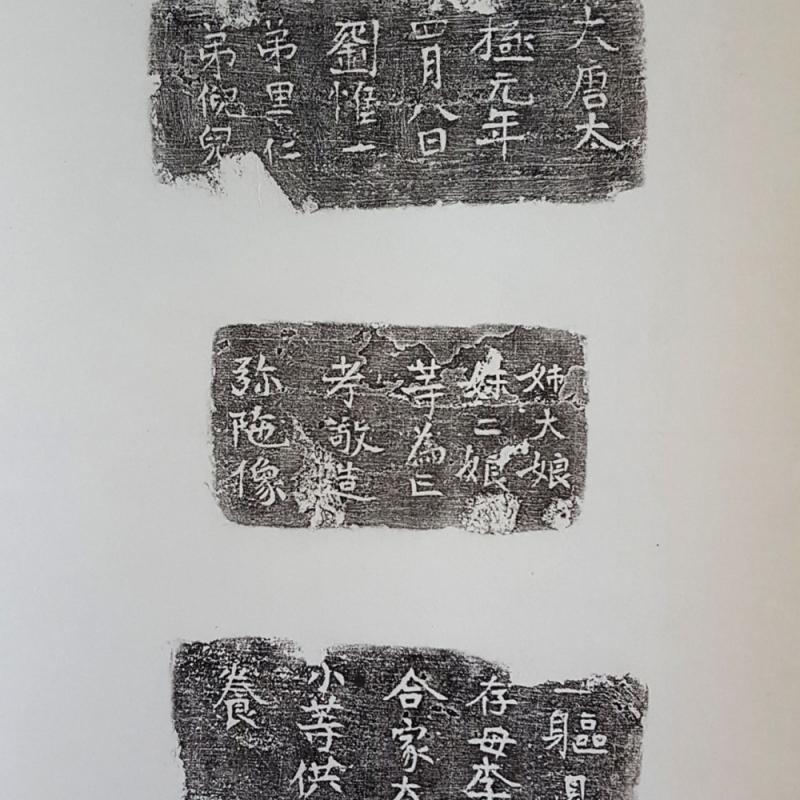 大唐太
極元年
四月八日
劉惟一
弟里仁
弟倪兒
姊大娘
妹二娘
等為亡
孝敬造
弥陁像
一軀見
存母李
合家大
小等供
養